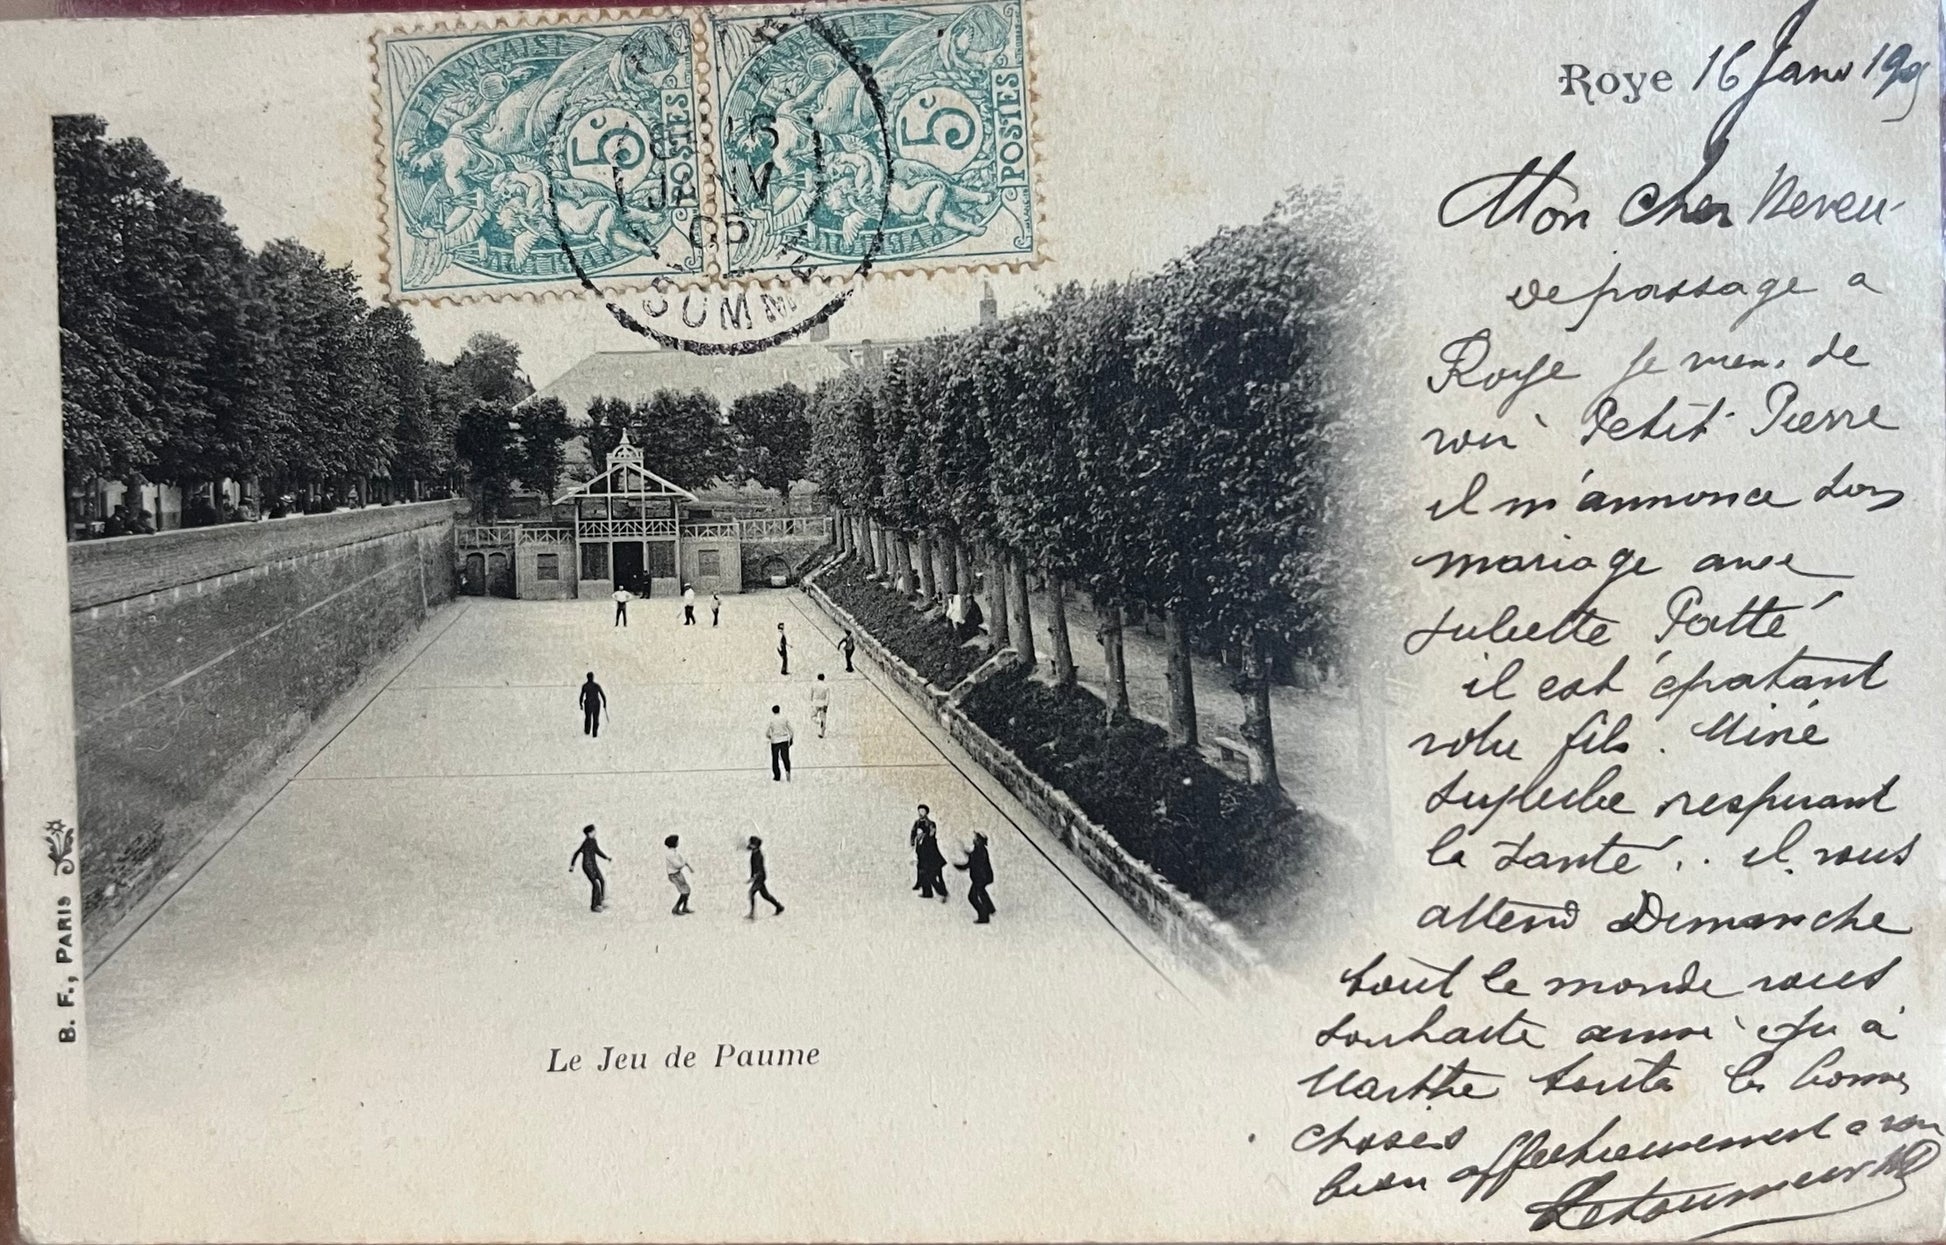 FRANÇAISE
5c
POSTES
5c
POSTES
16
JANV
05
SOMME
Roye 16 Janv 1905
Mon cher Neveu
de passage a
Roye je viens de
voir Petit Pierre
il m'annonce son
mariage avec
Juliette Patté
il est épatant
votre fils. Mine
superbe respirant
la santé. . il vous
attend Dimanche
tout le monde vous
souhaite ainsi qu à
Marthe toutes les bonnes
choses
bien affectueusement a vous
Letourneur
Le Jeu de Paume
B. F., PARIS